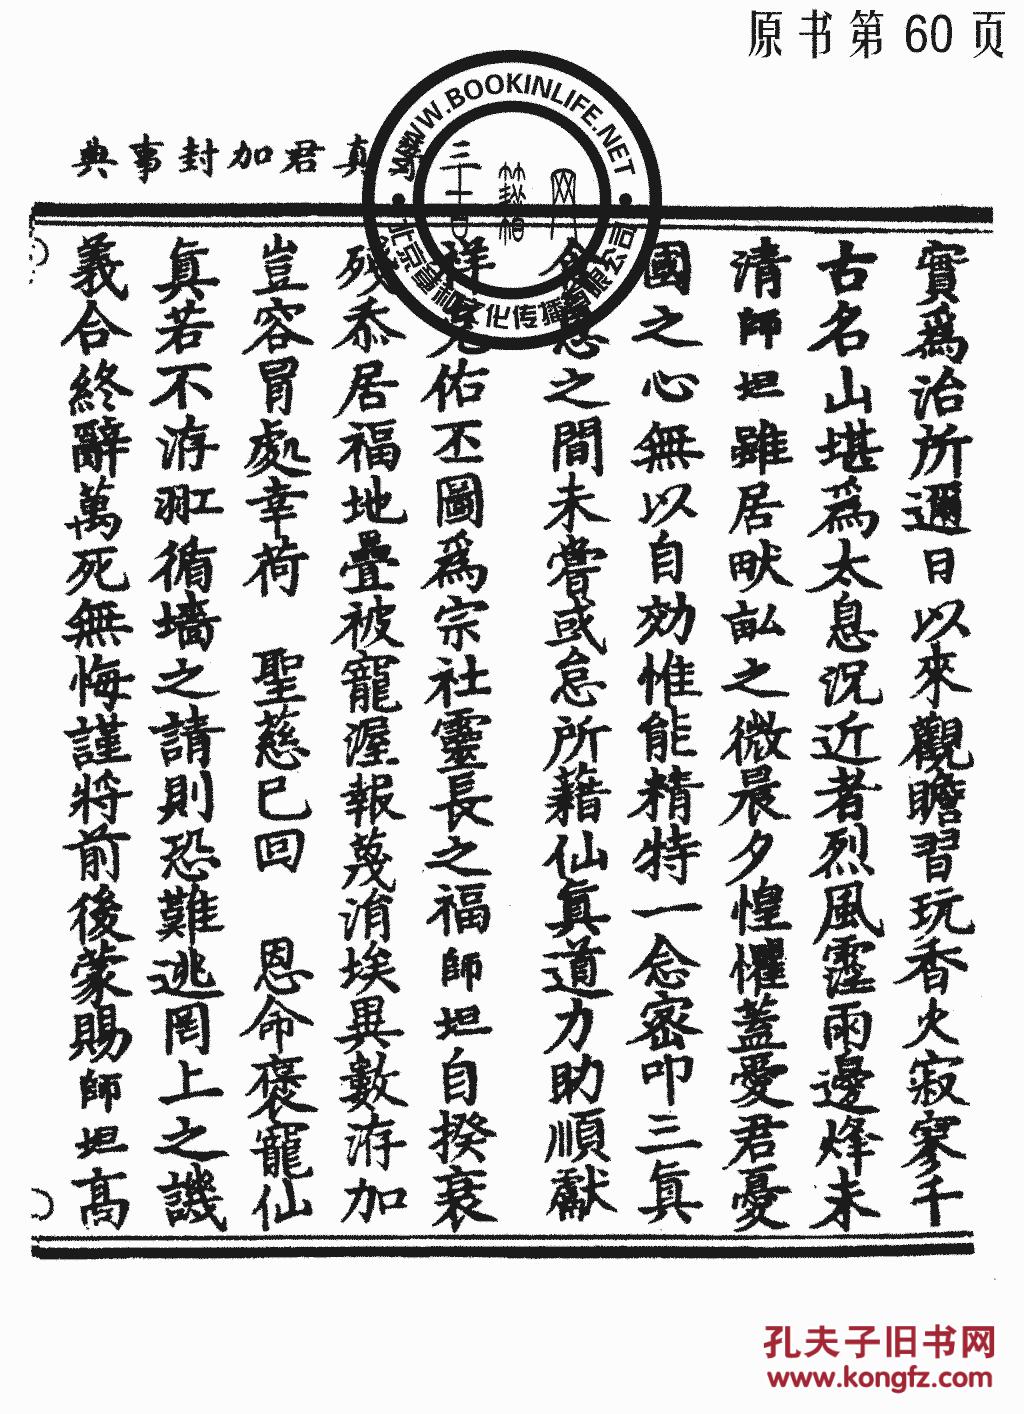 原书第60页
真君加封事典
WWW.BOOKINLIFE.NET
北京 文化传播有限公司
實爲治所邇日以來觀瞻習玩香火寂寥千
古名山堪爲太息況近者烈風霪雨邊烽未
清師坦雖居畎畝之微晨夕惶懼蓋愛君憂
國之心無以自効惟能精特一念密叩三真
急之間未嘗或怠所藉仙真道力助順獻
祥 佑丕圖爲宗社靈長之福師坦自揆衰
殘忝居福地疊被寵渥報蔑涓埃異數洊加
豈容冐處幸荷 聖慈已回 恩命褒寵仙
真若不洊瀝循墻之請則恐難逃罔上之譏
義合終辭萬死無悔謹將前後蒙賜師坦高
孔夫子旧书网
www.kongfz.com